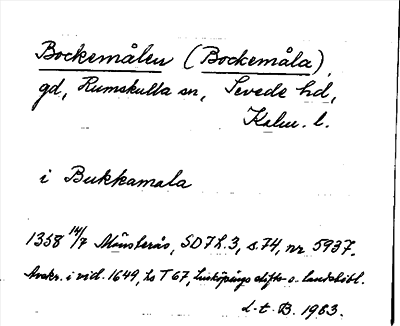 Bockemålen (Bockemåla),
gd, Rumskulla sn, Sevede hd,
Kalm. l.
i Bukkamala
1358 14/7 Mönsterås, SD 7 h. 3, s. 74, nr 5937.
Avskr. i vid. 1649, Ls T 67, Linköpings stifts- o. landsbibl.
L-t B. 1983.